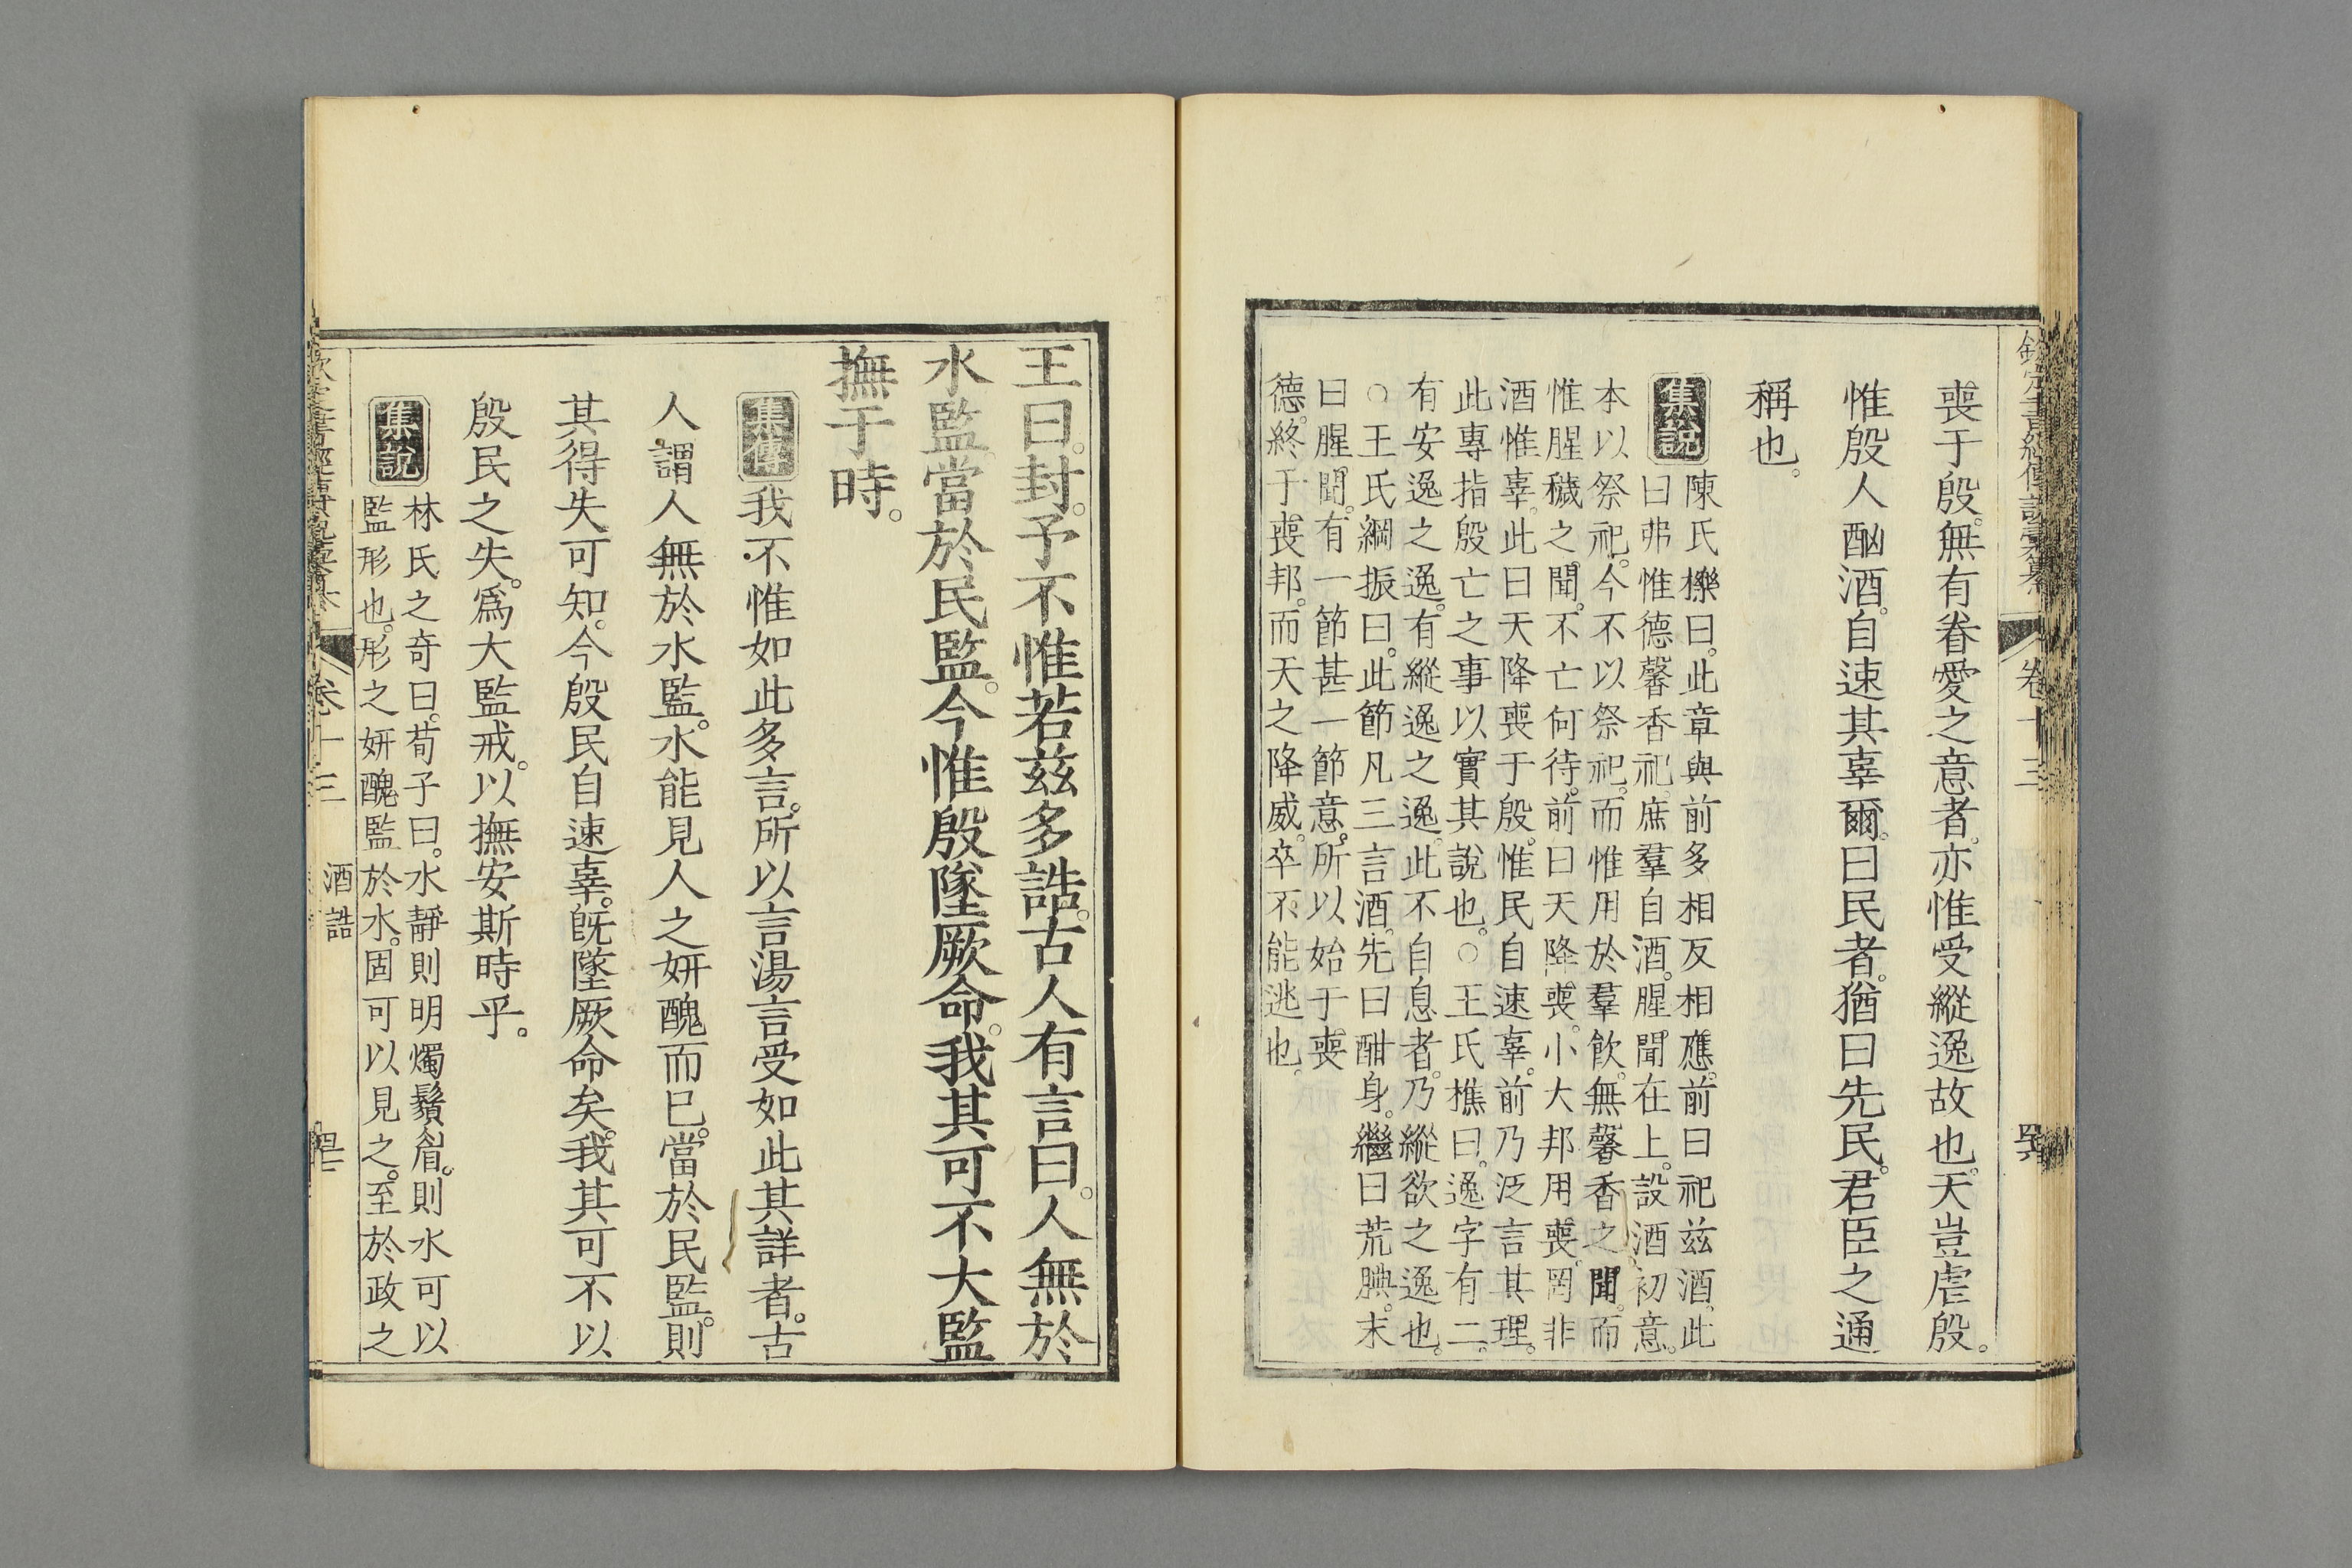 喪于殷。無有眷愛之意者。亦惟受縱逸故也。天豈虐殷。
惟殷人酗酒。自速其辜爾。曰民者。猶曰先民。君臣之通
稱也。
集說
陳氏櫟曰。此章與前多相反相應。前曰祀茲酒。此
曰弗惟德馨香祀。庶羣自酒。腥聞在上。設酒初意。
本以祭祀。今不以祭祀。而惟用於羣飲。無馨香之聞。而
惟腥穢之聞。不亡何待。前曰天降喪。小大邦用喪。罔非
酒惟辜。此曰天降喪于殷。惟民自速辜。前乃泛言其理。
此專指殷亡之事以實其說也。○王氏樵曰。逸字有二。
有安逸之逸。有縱逸之逸。此不自息者。乃縱欲之逸也。
○王氏綱振曰。此節凡三言酒。先曰酣身。繼曰荒腆。末
曰腥聞。有一節甚一節意。所以始于喪
德。終于喪邦。而天之降威。卒不能逃也。
欽定書經傳說彙纂
卷十三
王曰。封。予不惟若茲多誥。古人有言曰。人無於
水監。當於民監。今惟殷墜厥命。我其可不大監
撫于時。
集傳
我不惟如此多言。所以言湯言受如此其詳者。古
人謂人無於水監。水能見人之妍醜而已。當於民監。則
其得失可知。今殷民自速辜。旣墜厥命矣。我其可不以
殷民之失。爲大監戒。以撫安斯時乎。
集說
林氏之奇曰。荀子曰。水靜則明燭鬚眉。則水可以
監形也。形之妍醜監於水。固可以見之。至於政之
卷十三
酒誥